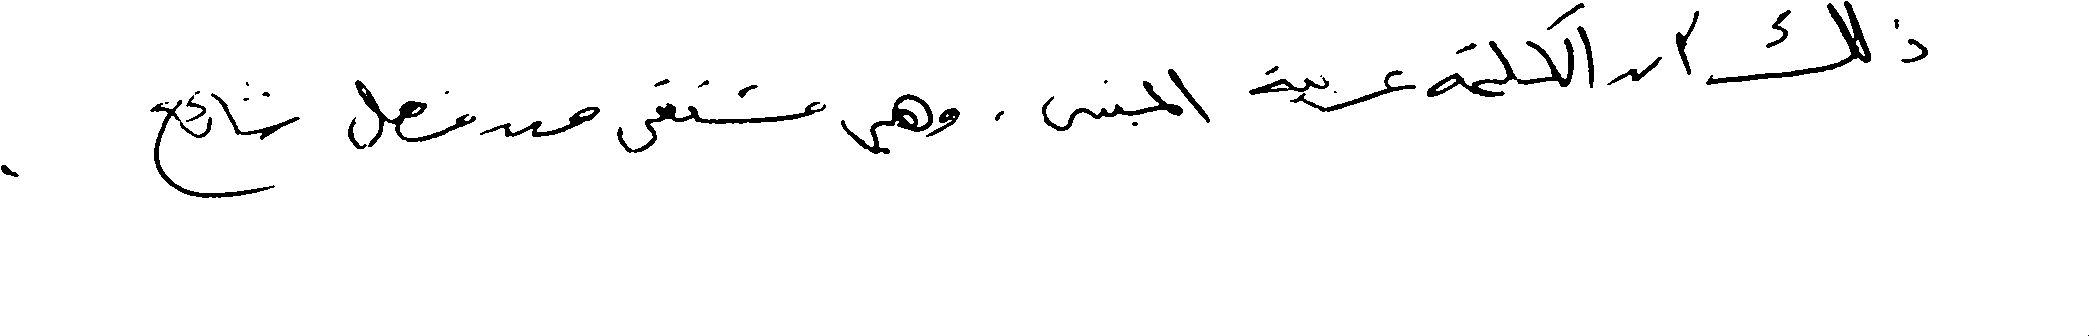 ذلك أن الكلمة عربية الجنس . وهي مشتقة من فعل شائع .